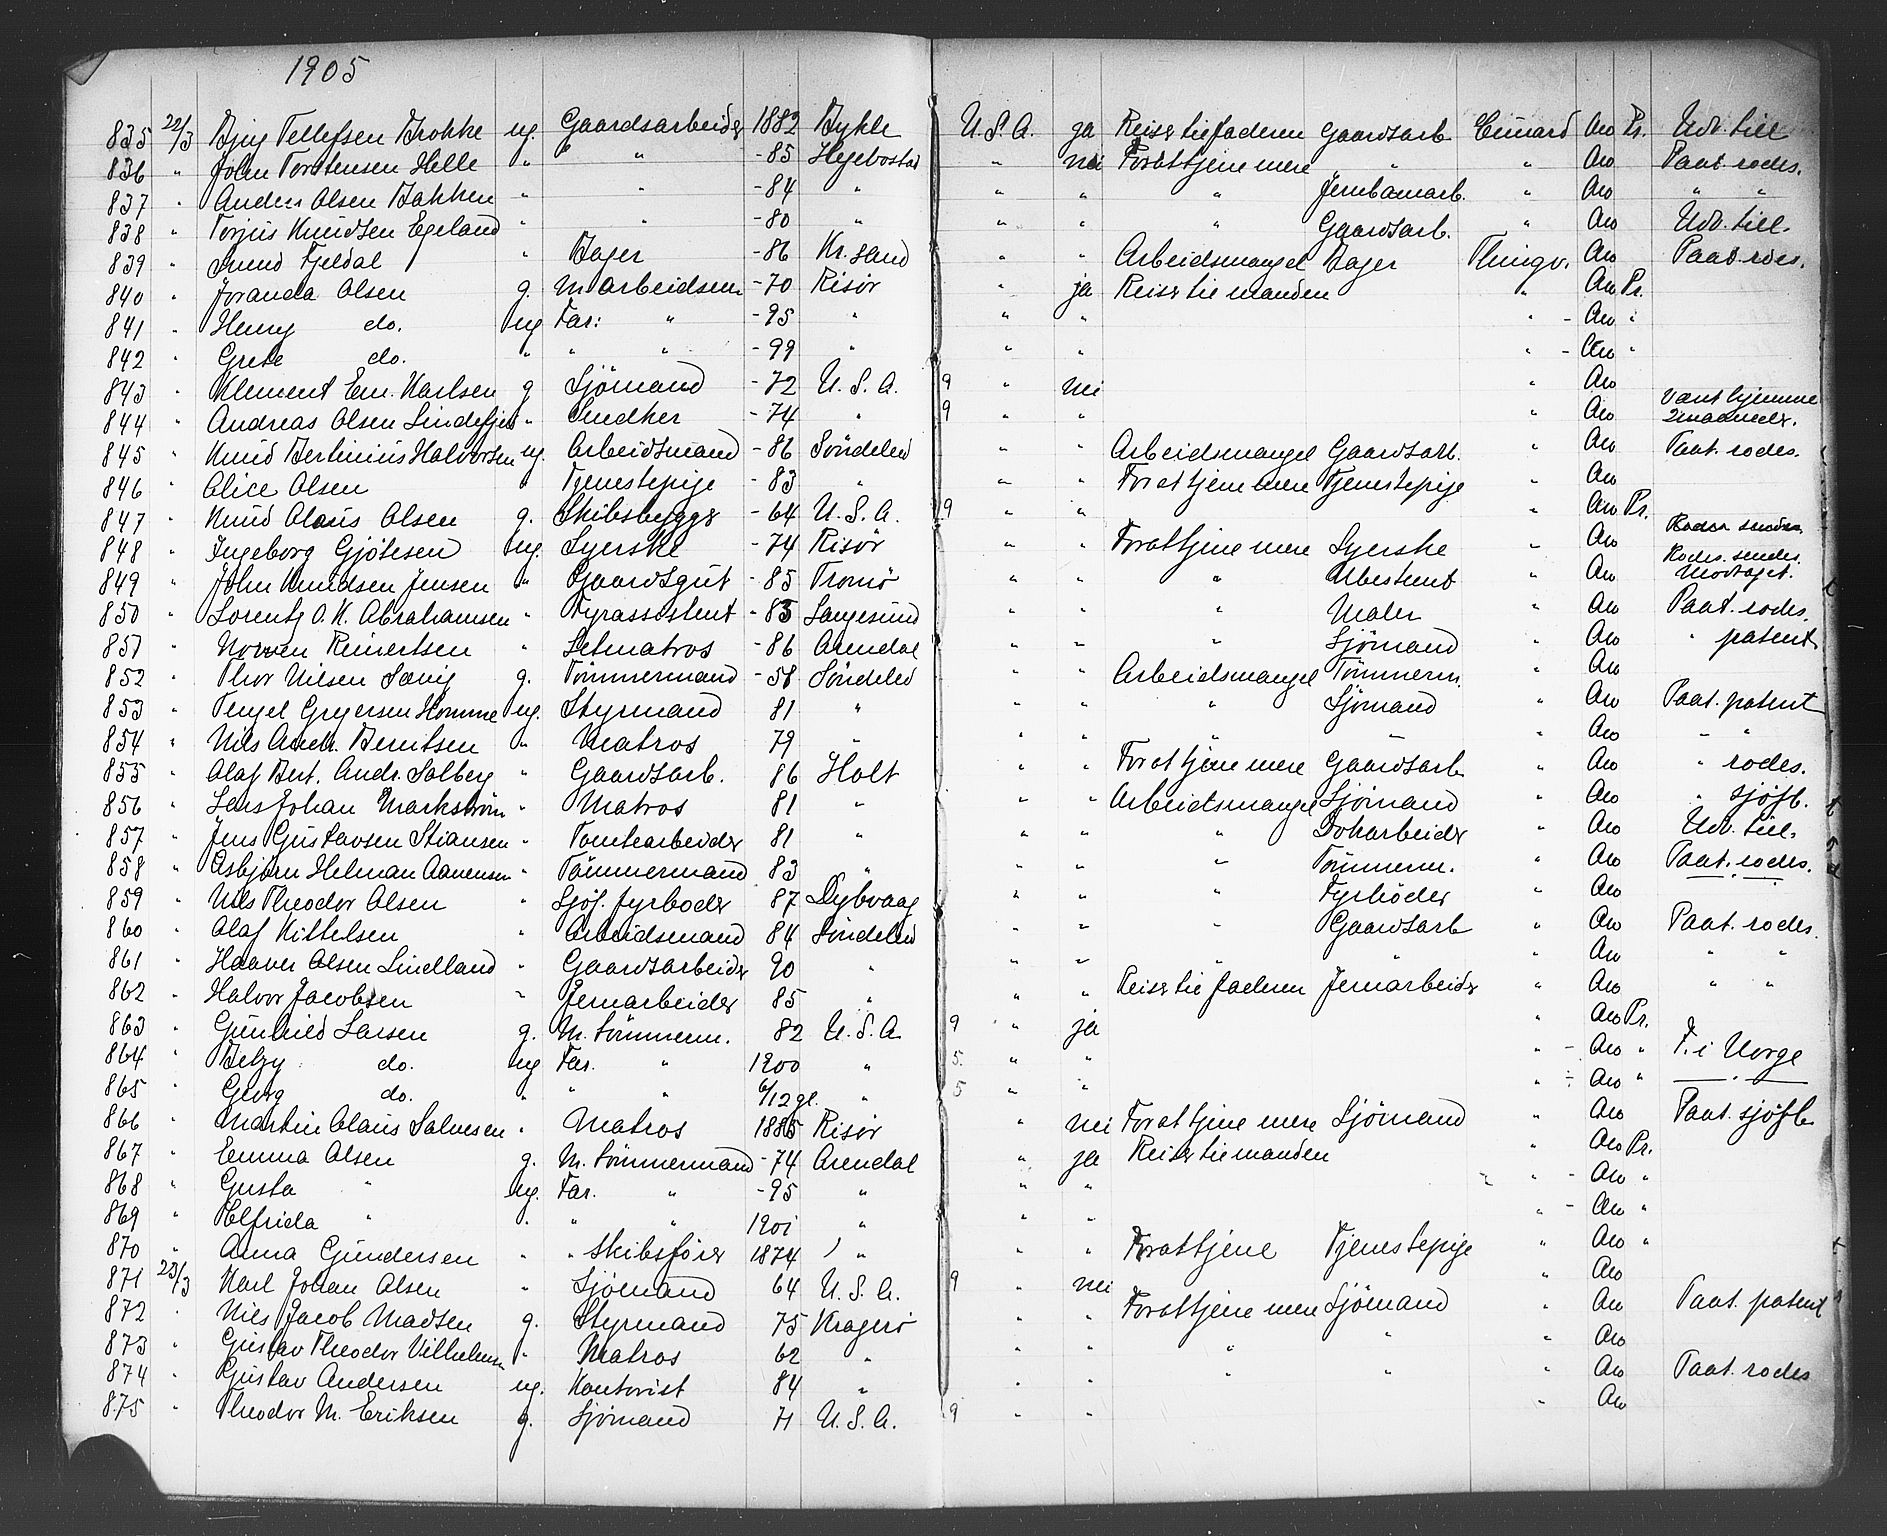 1905
835 22/3 Bjug Tellefsen Brokke ug. Gaardsarbeider 1882 Bykle U.S.A. ja Reiser til faderen Gaardsarb Cunard Aro Pr. Udv. till
836 " John Torstensen Helle " " -85 Hegebostad " nei Forattjene mere " " Aro Paat. rodes.
837 " Anders Olsen Bakken " " -84 " " " " Jernbanarb. " Aro " "
838 " Torjus Knudsen Egeland " " -80 " " " " Gaardsarb. " Aro Udv. till.
839 " Fjeldal " Bager -86 Kr.sand " " Arbeidsmangel Bager Thingv. Aro Paat. rodes.
840 " Joranda Olsen g. M. arbeidsm. -70 Risör " ja Reiser til manden " Aro Pr.
841 " Henry do. ug Far: " -95 " " " " - Aro "
842 " Grete do. " " " -99 " " " " - Aro "
843 " Klement Em. Karlsen g Sjömand -72 U.S.A. 9 " nei " Aro
844 " Andreas Olsen " Snedker -74 " 9 " " " Aro Vært hjemme 2 maaneder.
845 " Knud Bertinius Halvorsen ug. Arbeidsmand -86 Söndeled " " Arbeidsmangel Gaardsarb. " Aro Paat. rodes.
846 " Alice Olsen " Tjenestepige -83 " " " Forattjene mere Tjenestepige " Aro
847 " Knud Olaus Olsen g. Skibsbygger -64 U.S.A. 9 " " " Aro Pr.
848 " Ingeborg Gjötesen ug. Syerske -74 Risör " " Forattjene mere Syerske " Aro Rodes. sendes
849 " John Knudsen Jensen " Gaardsgut -85 Tromö " " " Ubestemt " Aro Rodes. sendes. Modtaget.
850 " Lorentz O.K. Abrahamsen " Fyrassistent -85 Langesund " " " Maler " Aro Paat. rodes.
851 " Reinertsen " Letmatros -86 Arendal " " " Sjömand " Aro " patent
852 " Thor Nilsen g. Tömmermand -58 Söndeled " " Arbeidsmangel Tömmerm. " Aro
853 " Tengel Gregersen Homme ug. Styrmand 81 " " " " Sjömand " Aro Paat. patent
854 " Nils Andr. Berntsen " Matros 79 " " " " " " Aro " "
855 " Olaf Bert. Andr. Solberg " Gaardsarb. 86 Holt " " Forattjene mere Gaardsarb " Aro " rodes.
856 " Lars Johan Markström " Matros 81 " " " Arbeidsmangel Sjömand " Aro " sjöfb.
857 " Jens Gustavsen Stiansen " Tomtearbeider 81 " " " " Dokarbeider " Aro Udv. till.
858 " Asbjörn Helman Aanensen " Tömmermand 83 " " " " Tömmerm. " Aro Paat. rodes.
859 " Nils Theodor Olsen " Sjöf. fyrboder 87 Dybvaag " " " Fyrböder " Aro
860 " Olaf Kittelsen " Arbeidsmand 84 Söndeled " " " Gaardsarb " Aro Paat. rodes.
861 " Haaver Olsen Lindland " Gaardsarbeider 90 " " " " " Aro " "
862 " Halvor Jacobsen " Jernarbeider 85 " " " Reiser til faderen Jernarbeider " Aro " "
863 " Gunhild Larsen g. M. tömmerm. 82 U.S.A 9 " ja " Aro Pr.
864 " Betzy do. ug Far. " 1900 " 5. " " " - Aro " F. i Norge
865 " Georg do. " " " 6/12 gl. " 5 " " " - Aro " "
866 " Martin Olaus Salvesen " Matros 1885 Risör " nei Forattjene mere Sjömand " Aro Paat. sjöfb
867 " Emma Olsen g. M. tömmermand -74 Arendal " ja Reiser til manden Aro Pr.
868 " Gusta " ug. Far. " -95 " " " " - Aro "
869 " Elfrida " " " " 1901 " " " " - Aro "
870 " Anna Gundersen " " Skibsförer 1874 " " " Forattjene Tjenestepige " Aro "
871 23/3 Karl Johan Olsen " Sjömand 64 U.S.A. 9 " nei " Aro
872 " Nils Jacob Madsen g. Styrmand 75 Kragerö " " Forattjene mere Sjömand " Aro Paat. patent
873 " Gustav Theodor Vilhelmsen " Matros 62 " " " " " " Aro
874 " Gustav Andersen ug. Kontorist 84 " " " " " " Aro Paat. rodes
875 " Theodor M. Eriksen g. Sjömand 71 U.S.A. 9 " " " Aro